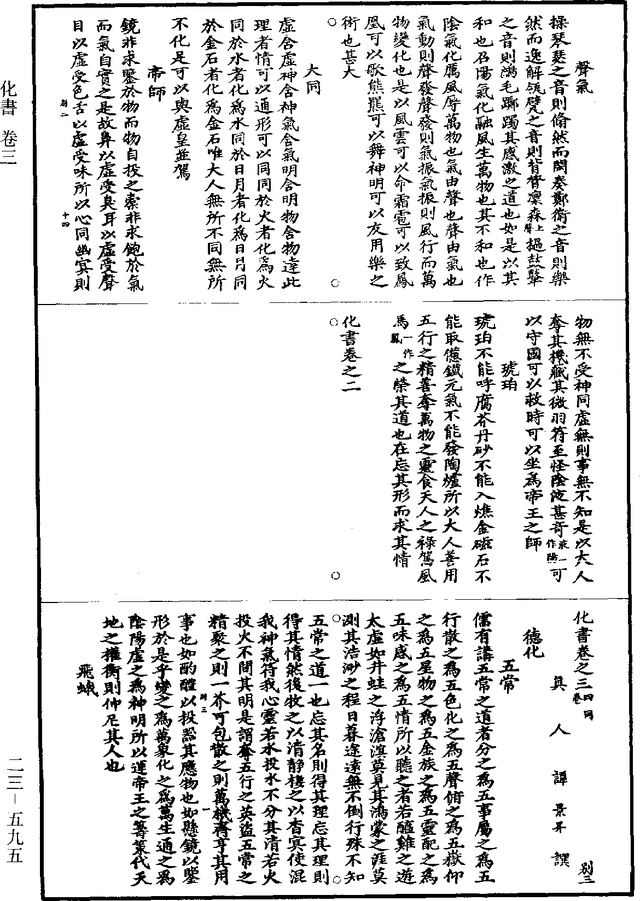 化書 卷三
二三－五九五
聲氣
操琴瑟之音則翛然而閑奏鄭衛之音則樂
然而逸解瓴甓之音則背膂凜森上聲撾鼓鼙
之音則鴻毛躑躅其感激之道也如是以其
和也召陽氣化融風生萬物也其不和也作
陰氣化厲風辱萬物也氣由聲也聲由氣也
氣動則聲發聲發則氣振氣振則風行而萬
物變化也是以風雲可以命霜雹可以致鳳
凰可以歌熊羆可以舞神明可以友用樂之
術也甚大
大同
虛含虛神含神氣含氣明含明物含物達此
理者情可以通形可以同同於火者化為火
同於水者化為水同於日月者化為日月同
於金石者化為金石唯大人無所不同無所
不化足可以與虛皇並駕
帝師
鏡非求鑒於物而物自投之橐非求飽於氣
而氣自實之是故鼻以虛受臭耳以虛受聲
目以虛受色舌以虛受味所以心同幽冥則
別二 十四
物無不受神同虛無則事無不知是以大人
奪其機藏其微羽符至怪陰液甚奇一作陽可
以守國可以救時可以坐為帝王之師
琥珀
琥珀不能呼腐芥丹砂不能入燋金磁石不
能取憊鐵元氣不能發陶爐所以大人善用
五行之精善奪萬物之靈食天人之祿駕風
馬一作鳳之榮其道也在忘其形而求其情
化書卷之二
化書卷之三四同卷 別三
真人譚景昇譔
德化
五常
儒有講五常之道者分之為五事屬之為五
行散之為五色化之為五聲俯之為五嶽仰
之為五星物之為五金族之為五靈配之為
五味感之為五情所以聽之者若醯雞之遊
太虛如井蛙之浮滄溟莫見其鴻蒙之涯莫
測其浩渺之程日暮途遠無不倒行殊不知
五常之道一也忘其名則得其理忘其理則
得其情然後牧之以清靜棲之以杳冥使混
我神氣符我心靈若水投水不分其清若火
投火不問其明是謂奪五行之英盜五常之
精聚之則一芥可包散之則萬機齊亨其用
別三 一
事也如酌醴以投器其應物也如懸鏡以鑒
形於是乎變之為萬象化之為萬生通之為
陰陽虛之為神明所以運帝王之籌策代天
地之權衡則仲尼其人也
飛蛾